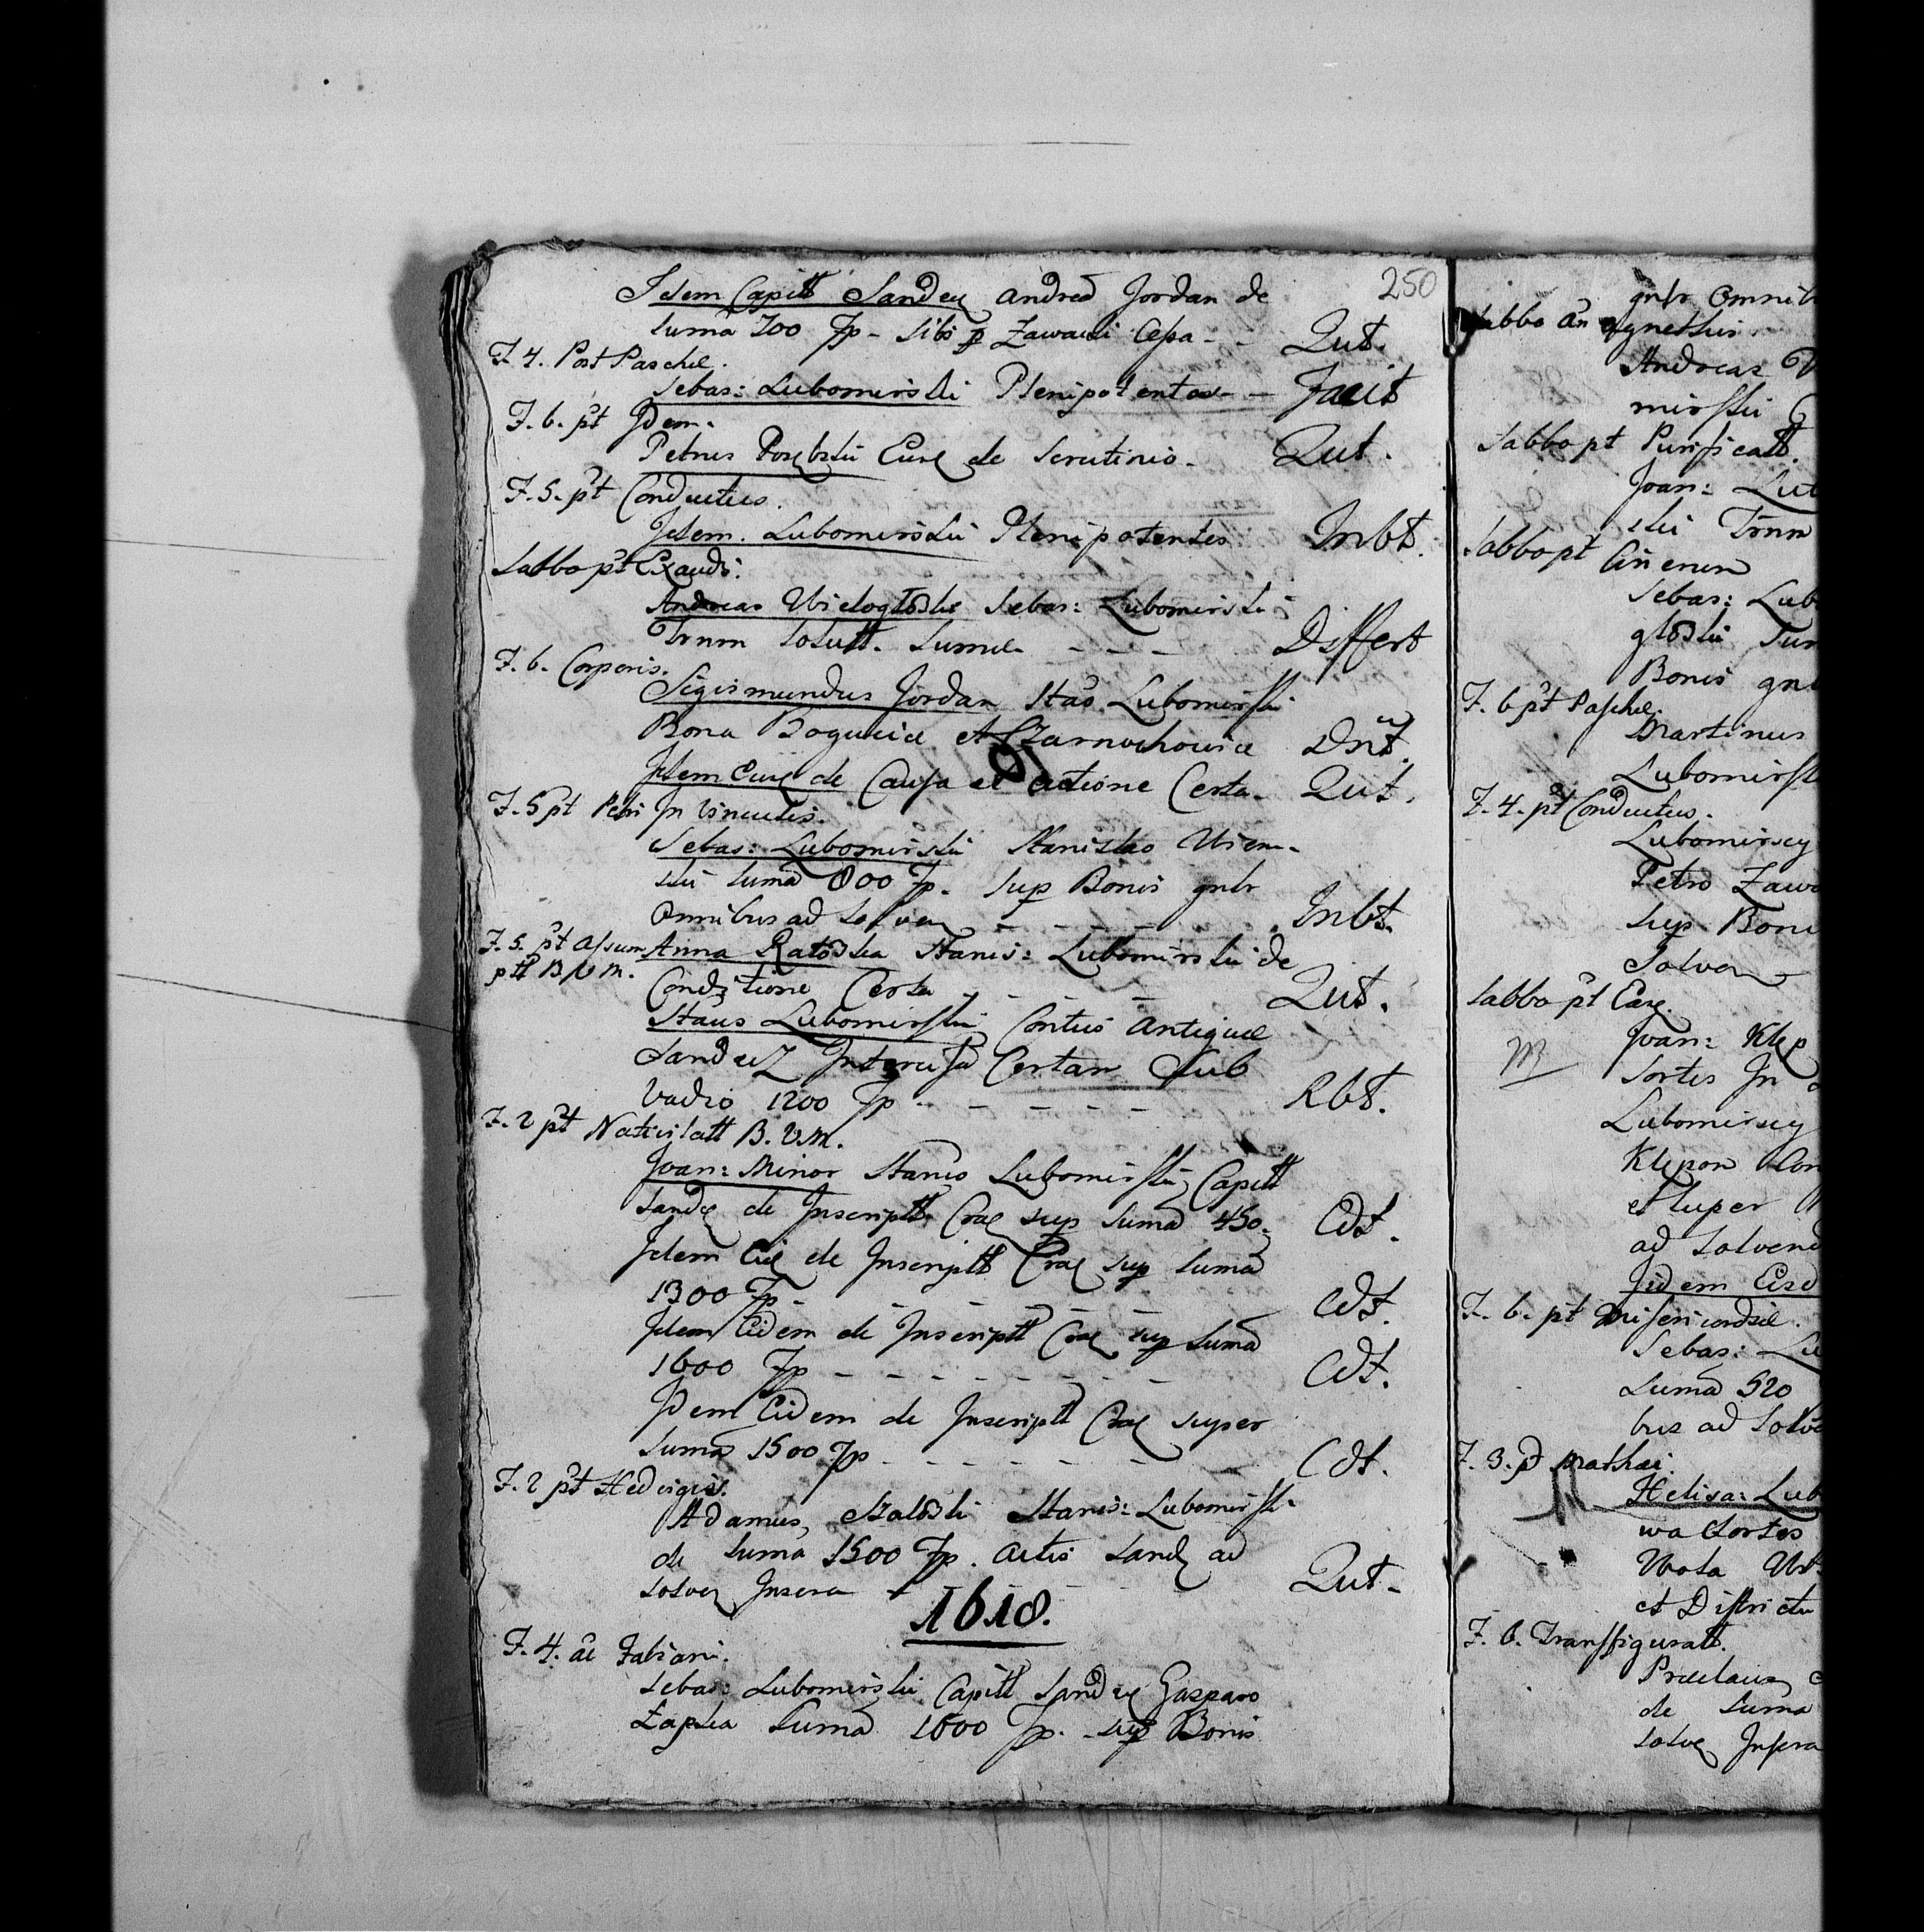 250
Idem Capitt Sandec Andreæ Jordan de
Suma 700 Fp - sibi p Zawacki Cessa - - Qut.
F. 4. Post Paschæ.
Sebas: Lubomirski Plenipotentes - - Facit
F. 6. pt Idem.
Petrus Eunq de Scrutinio - Qut.
F. 5. pt Conductus.
Idem. Lubomirskii Plenipotentes Inbt.
Sabbo pt Exaudi.
Andreas Wielogłoski Sebas: Lubomirski
Trnm Solutt. Sumæ - - - Differt
F. 6. Corporis.
Sigismundus Jordan Stão Lubomirski
Bona Bogucice et Czarnochowice Dnt.
Idem Eunq de Causa et actione Certa - Qut.
F. 5 pt Petri In Vinculis.
Sebas: Lubomirskii Stanislao Wiem-
skii Suma 800 Fp. Sup Bonis gnlr
Omnibus ad Solven - - - - Inbt.
F. 5. pt Assum Anna Stanis: Lubomirskii de
ptt B V M. Conditione Certa - - - Qut.
Staus Lubomirski Contus Antiquæ
Sandecz Intercisã Certam Sub
Vadio 1200 Fp - - - - - Rbt.
F. 2 pt Nativitatt B. V. M.
Joan: Minor Stanis Lubomirski Capitt
Sandec de Inscriptt. Crac sup Suma 450. Cdt.
Idem Eid de Inscriptt Crac sup Suma
1300 Fp - - - - - - Cdt.
Idem Eidem de Inscriptt Crac sup Suma
1600 Fp - - - - - - - Cdt.
Idem Eidem de Inscriptt Crac super
Suma 1500 Fp - - - - - - Cdt.
F. 2 pt Hedvigis.
Adamus, Stanis: Lubomirski
de Suma 1500 Fp. Actis Sand ad
Solven Inscra - - - Qut -
1618.
F. 4. ae Fabiani.
Sebas: Lubomirskii Capitt Sandec Gasparo
Łapka Suma 1600 Fp. sup Bonis
gnlr Omnib
Sabbo an Agnethis
Andreas W
mirski
Sabbo pt Purificatt.
Joan: Lub
skii Trnm
Sabbo pt Cinerum
Sebas: Lub
głoskii Sum
Bonis gnl
F. 6 pt Paschæ.
Martinus
Lubomirsk
F. 4. pt Conductus.
Lubomirscy
Petro Zawa
Sup Boni
Solven
Sabbo pt Eing.
Joan: Klep
Sortes In
Lubomirscy
Klepon Con
et super
ad Solvend
Iidem Eisd
F. 6. pt Misericordiæ.
Sebas: Lu
Suma 520
bus ad Solve
F. 3. pt Mathæi.
Helisa: Lub
wa Sortes
Wola Wi
et Districtu
F. 6. Transfiguratt.
Præclaus
de Suma
Solve Inscra